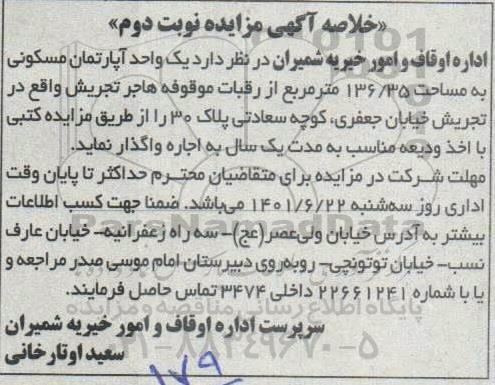 «خلاصه آگهی مزایده نوبت دوم»
اداره اوقاف و امور خیریه شمیران در نظر دارد یک واحد آپارتمان مسکونی
به مساحت ۱۳۶/۳۵ مترمربع از رقبات موقوفه هاجر تجریش واقع در
تجریش خیابان جعفری، کوچه سعادتی پلاک ۳۰ را از طریق مزایده کتبی
با اخذ ودیعه مناسب به مدت یک سال به اجاره واگذار نماید.
مهلت شرکت در مزایده برای متقاضیان محترم حداکثر تا پایان وقت
اداری روز سه‌شنبه ۱۴۰۱/۶/۲۲ می‌باشد. ضمنا جهت کسب اطلاعات
بیشتر به آدرس خیابان ولی‌عصر (عج)- سه راه زعفرانیه- خیابان عارف
نسب- خیابان توتونچی- روبه‌روی دبیرستان امام موسی صدر مراجعه و
یا با شماره ۲۲۶۶۱۲۴۱ داخلی ۳۴۷۴ تماس حاصل فرمایند.
پایگاه اطلاع رسانی مناقصه و مزایده
سرپرست اداره اوقاف و امور خیریه شمیران
۰۲۱-۸۸۳۴۹۶۷۰-۵
سعید اوتارخانی
۱۷۹